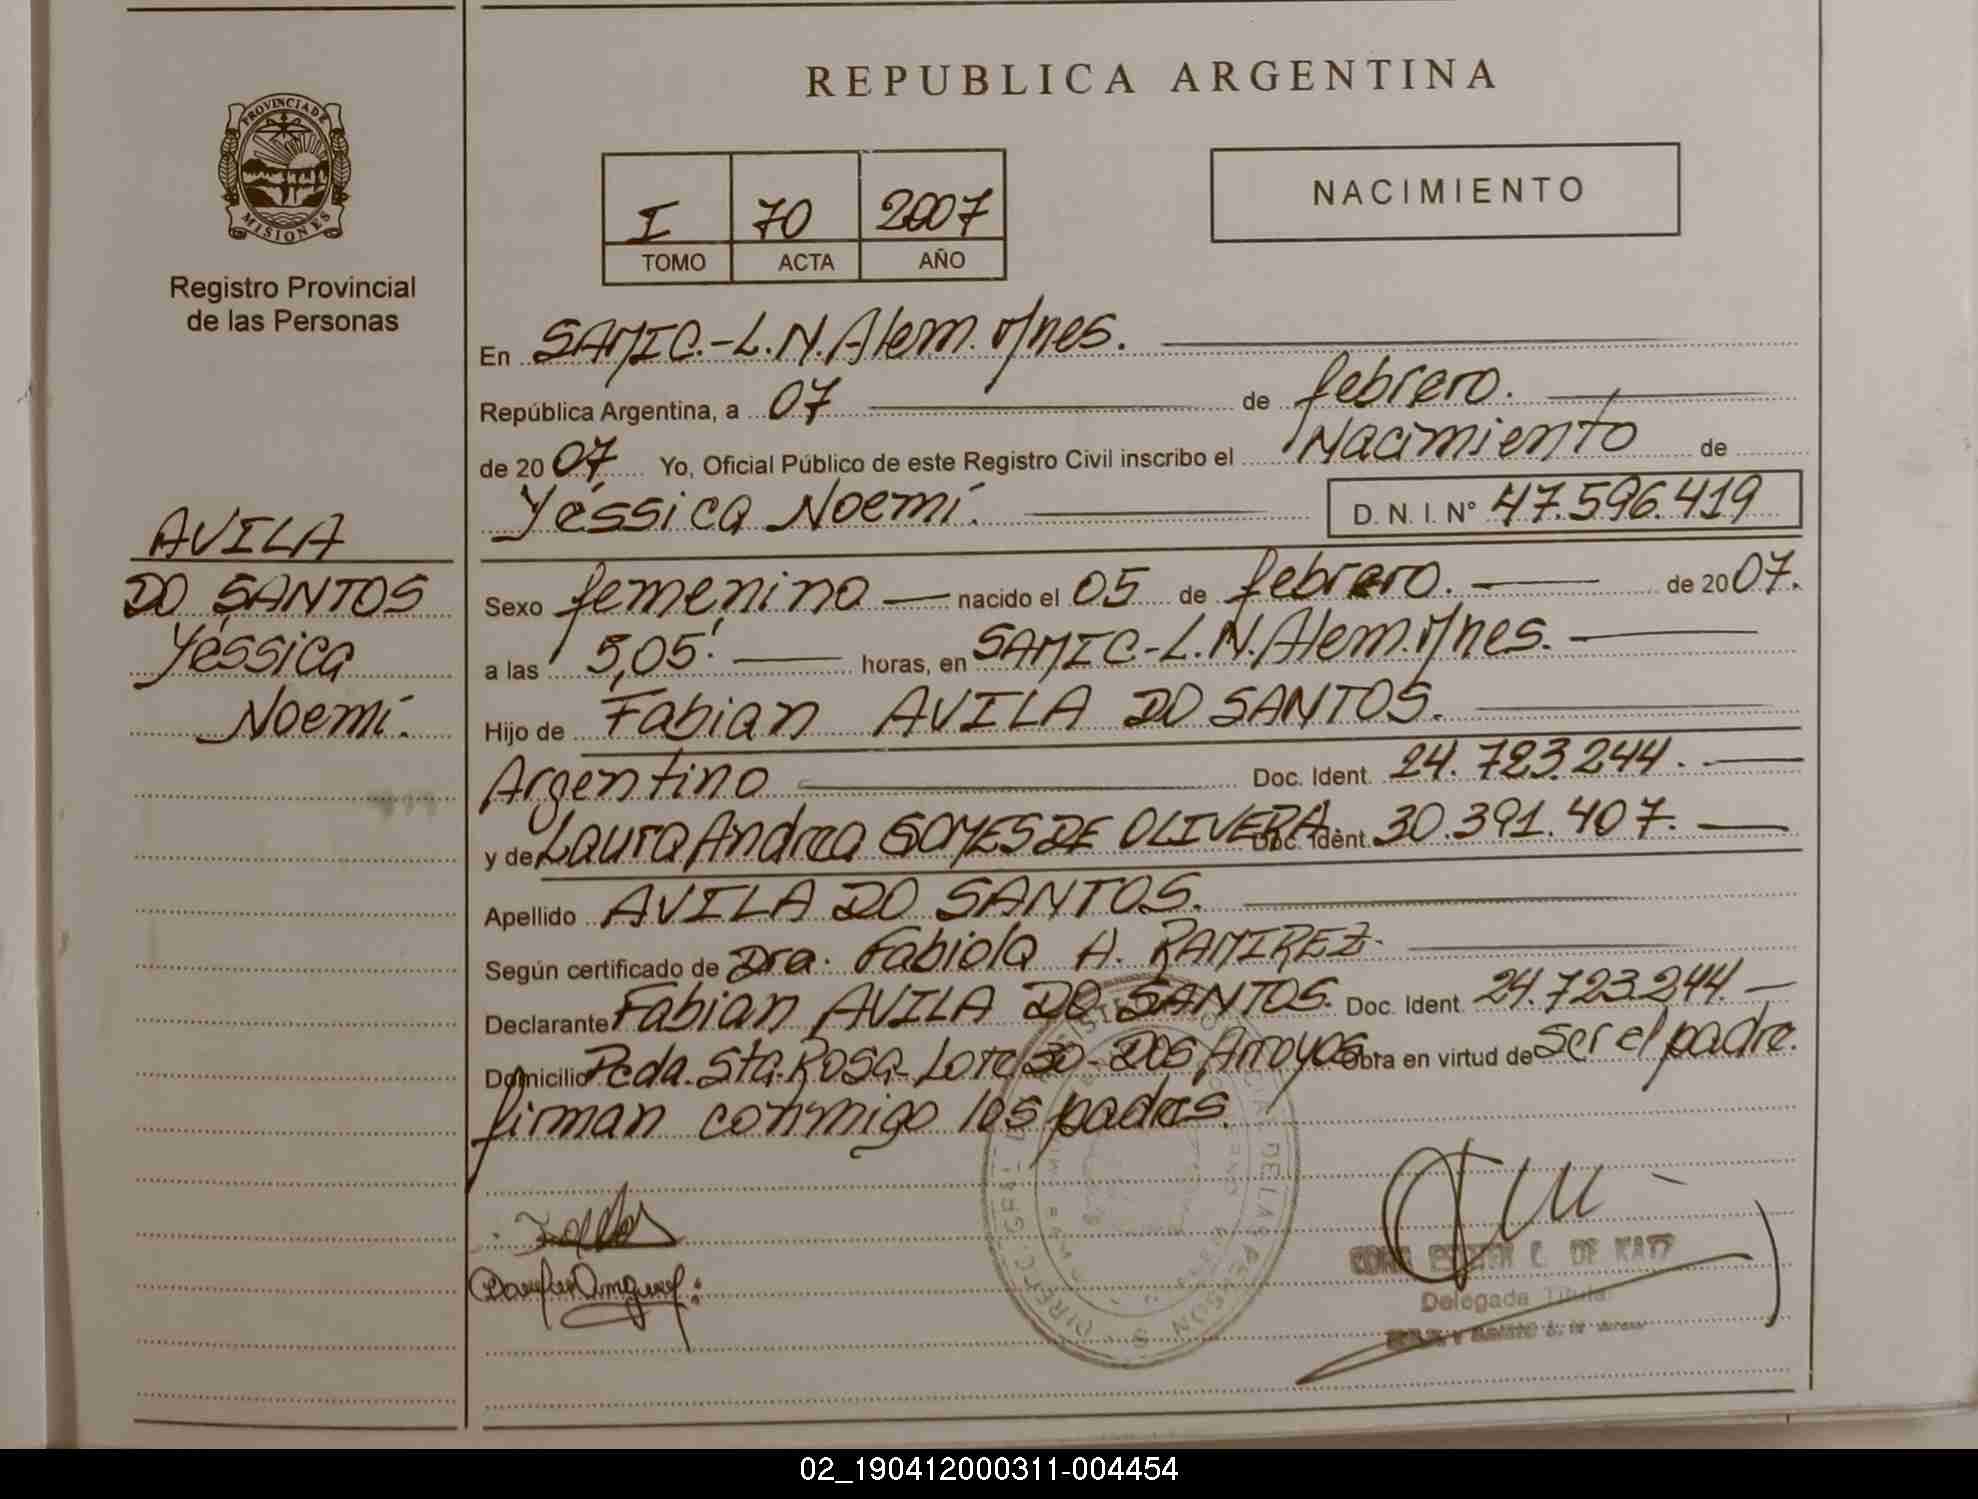 REPUBLICA ARGENTINA
PROVINCIA DE
MISIONES
Registro Provincial
de las Personas
I 70 2007
TOMO ACTA AÑO
NACIMIENTO
En SAMIC.-L.N.Alem. M/nes.
República Argentina, a 07 de febrero.
de 2007 Yo, Oficial Público de este Registro Civil inscribo el Nacimiento de
Yéssica Noemí. D. N. I. N° 47.596.419
AVILA
DO SANTOS
Yéssica
Noemí.
Sexo femenino nacido el 05 de febrero. de 2007.
a las 5,05' horas, en SAMIC-L.N.Alem.M/nes.
Hijo de Fabian AVILA DO SANTOS.
Argentino Doc. Ident. 24.723.244.
y de Laura Andrea GOMES DE OLIVERA Doc. Ident. 30.391.407.
Apellido AVILA DO SANTOS.
Según certificado de Dra. Fabiola A. RAMIREZ.
Declarante Fabian AVILA DO SANTOS. Doc. Ident. 24.723.244.
Domicilio Pcda. Sta. Rosa- Lote 30- Dos Arroyos. Obra en virtud de ser el padre.
firman conmigo los padres.
ESTHER C. DE KATZ
Delegada Titular
02_190412000311-004454